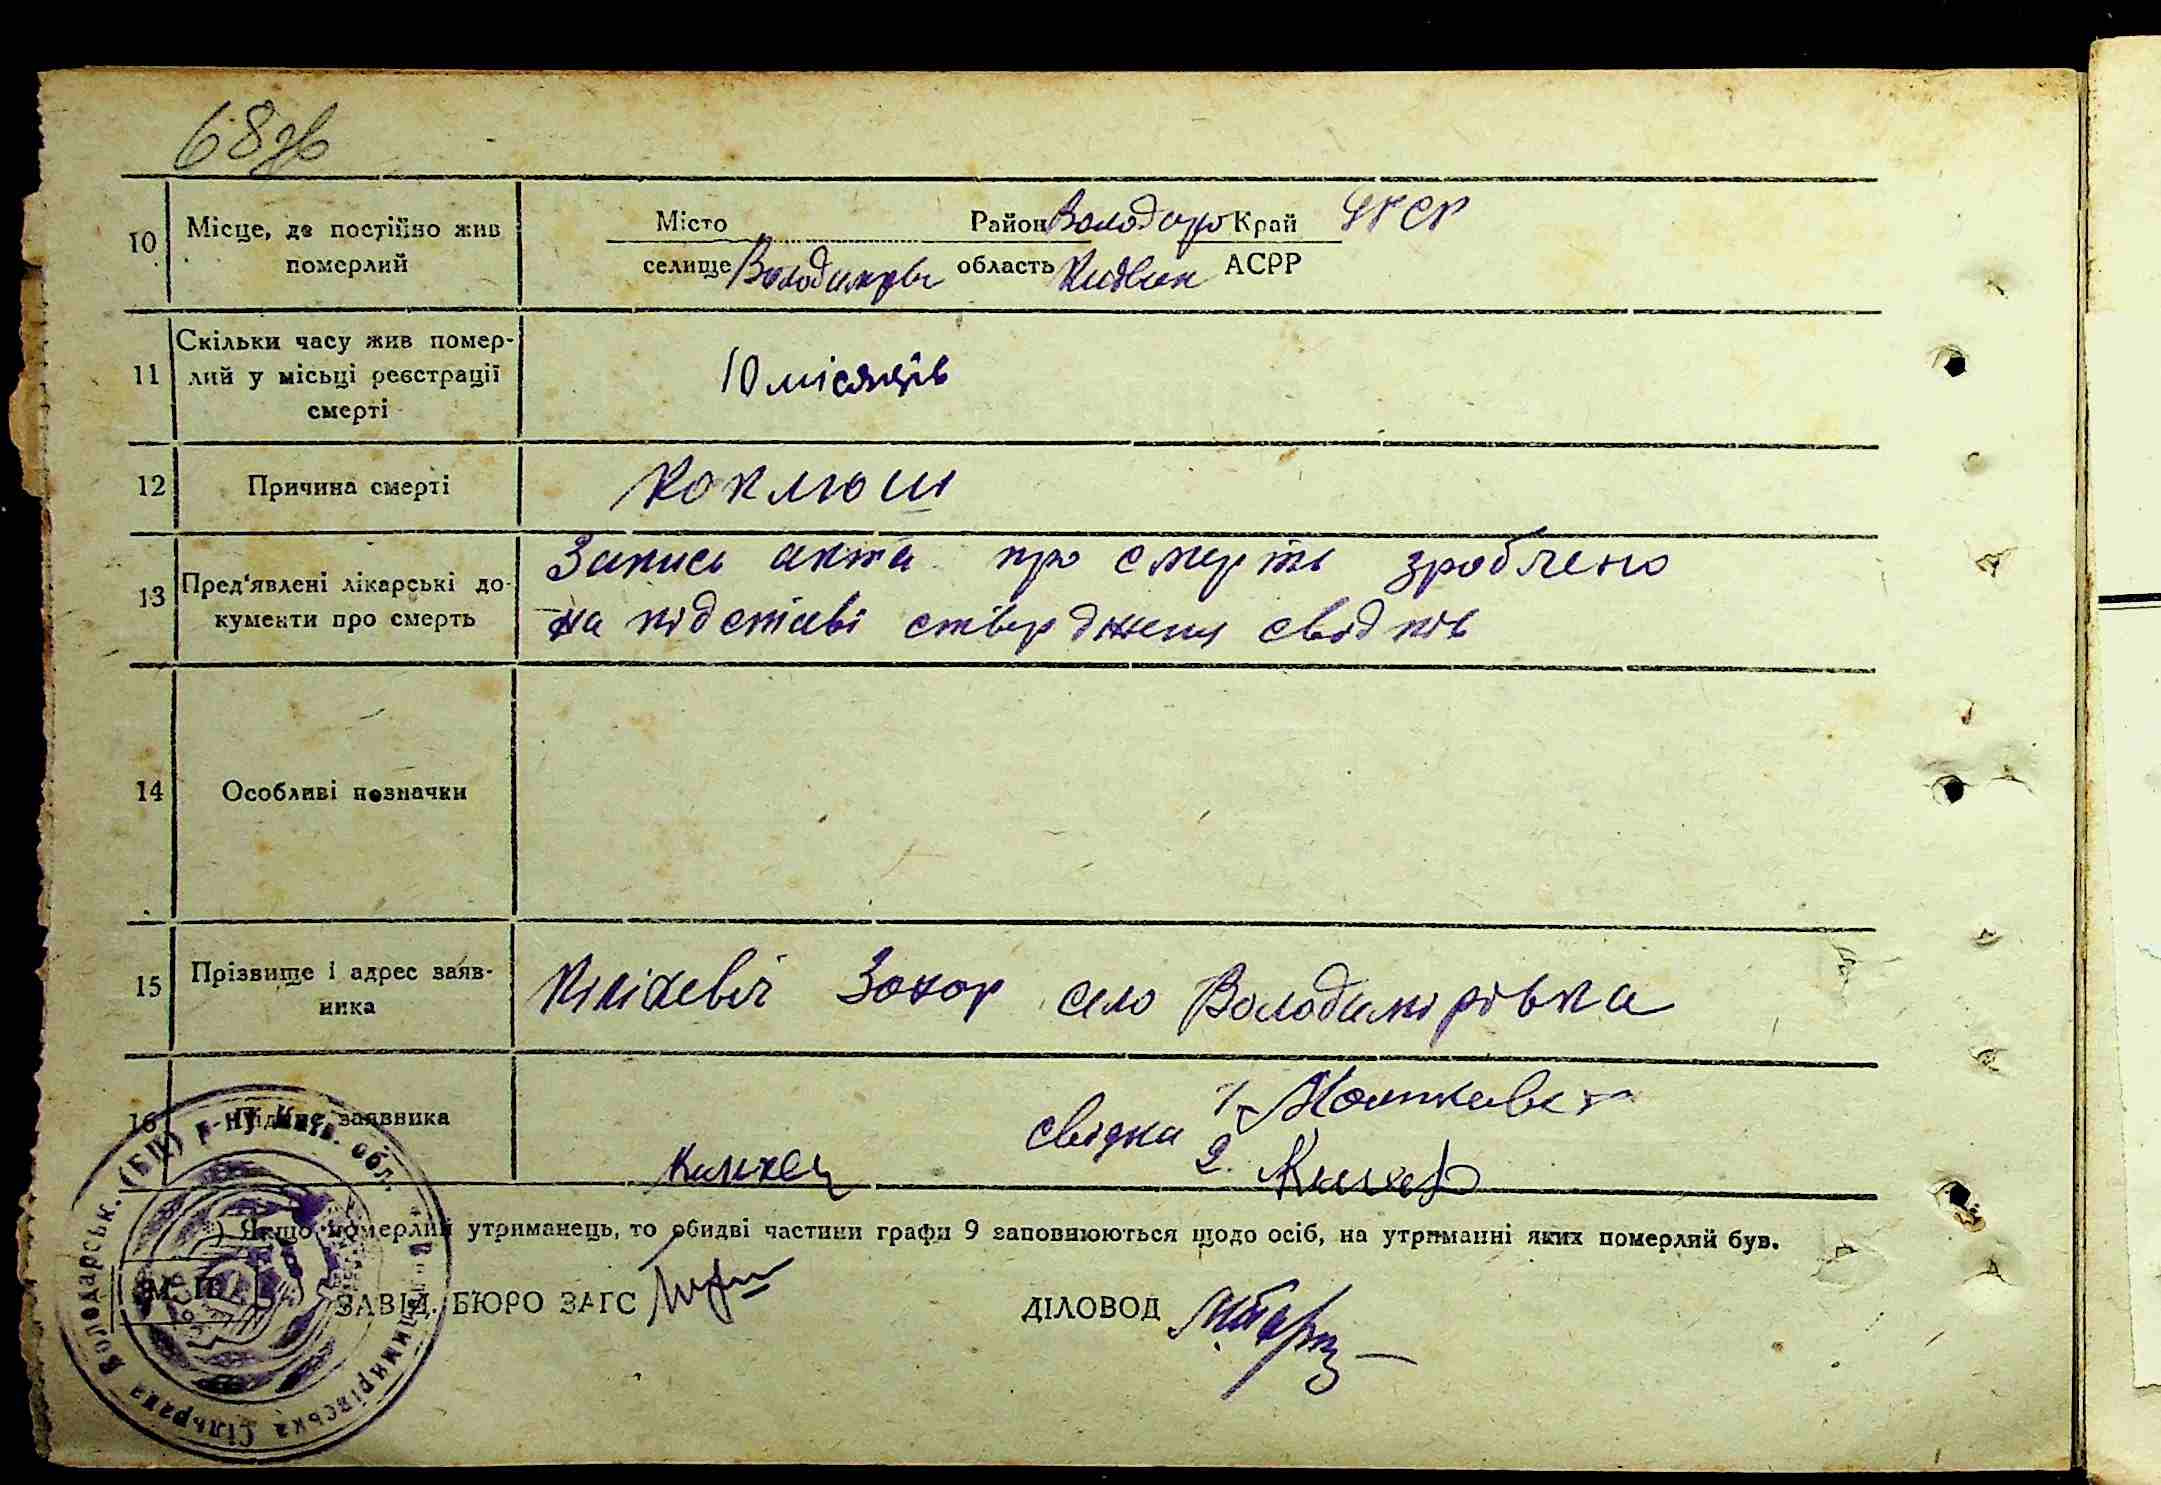 68зв
10 Місце, де постійно жив Місто Район Володар Край УРСР
померлий селище Володимирів область Київськ АСРР
Скільки часу жив помер-
11 лий у місці реєстрації 10 місяців
смерті
12 Причина смерті Коклюш
Запись акта про смерть зроблено
13 Пред'явлені лікарські до-
кументи про смерть на підставі ствердженя свідків
14 Особливі позначки
15 Прізвище і адрес заяв-
ника Кліхевіч Зохор село Володимірівка
16 Підпис заявника свідки 1
2.
*) Якщо померлий утриманець, то обидві частини графи 9 заповнюються щодо осіб, на утриманні яких померлий був.
М. П. ЗАВІД. БЮРО ЗАГС ДІЛОВОД
Володимирівська Сільрада Володарськ. (БЦ) р-ну Київ. обл.